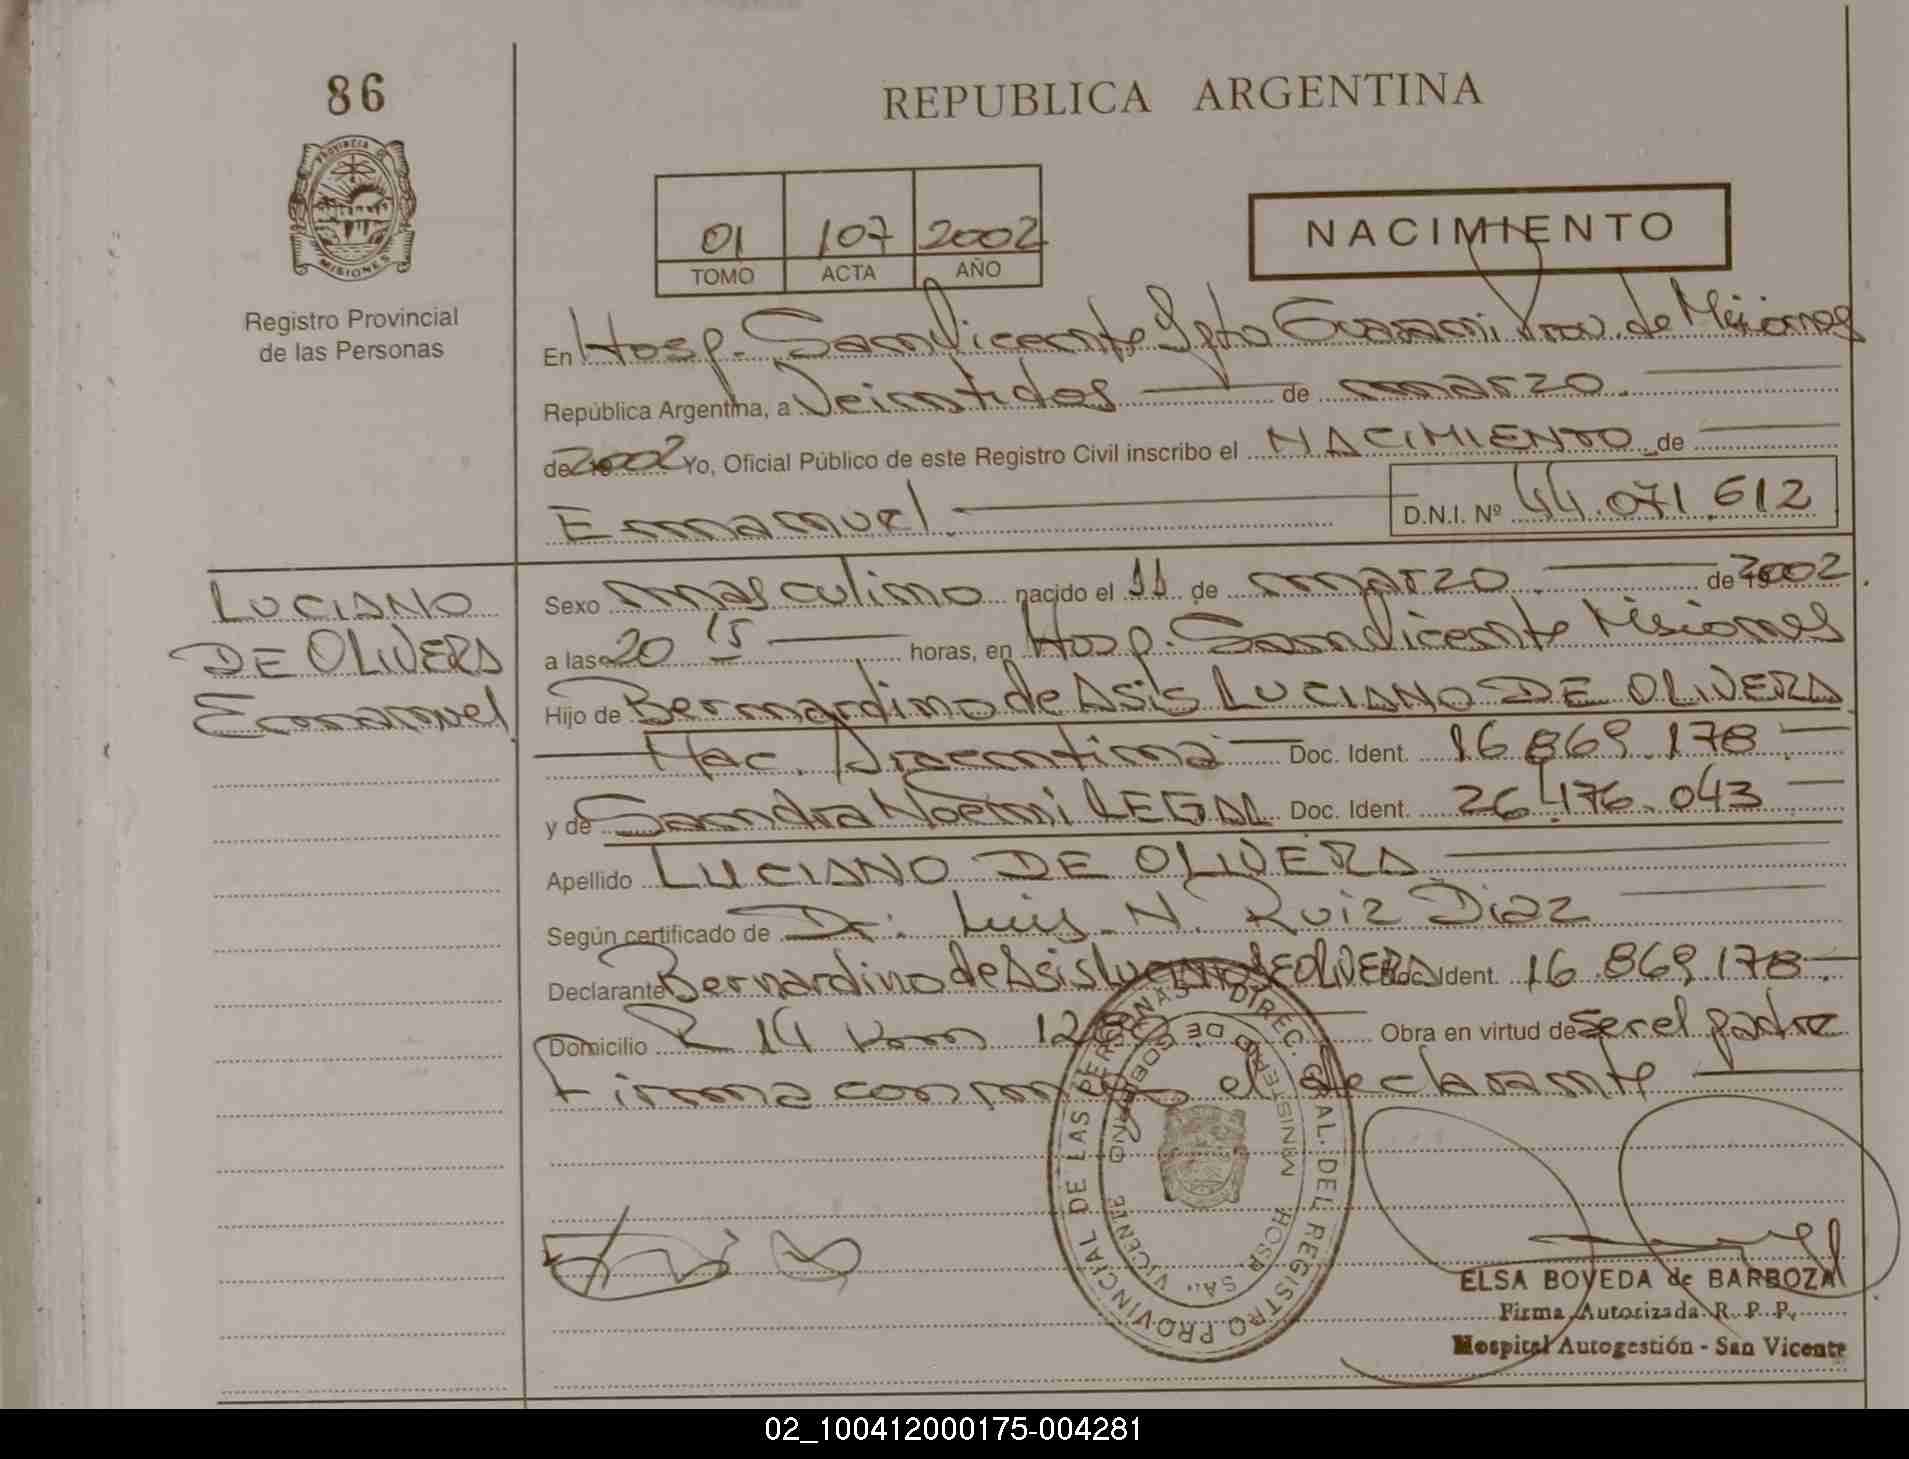 86
REPUBLICA ARGENTINA
PROVINCIA DE
MISIONES
Registro Provincial
de las Personas
01 107 2002
TOMO ACTA AÑO
NACIMIENTO
En Hosp. San Vicente Dpto Guarani Prov. de Misiones
República Argentina, a Veintidos de marzo
de 2002 Yo, Oficial Público de este Registro Civil inscribo el NACIMIENTO de
Emanuel D.N.I. Nº 44.071.612
LUCIANO
DE OLIVERA
Emanuel
Sexo masculino nacido el 11 de marzo de 2002
a las 20 15 horas, en Hosp. San Vicente Misiones
Hijo de Bernardino de Asis LUCIANO DE OLIVERA
Nac. Argentina Doc. Ident. 16.869.178
y de Sandra Noemi LEGAL Doc. Ident. 26.476.043
Apellido LUCIANO DE OLIVERA
Según certificado de Dr. Luis N. Ruiz Diaz
Declarante Bernardino de Asis Luciano DE OLIVERA Doc. Ident. 16.869.178
Domicilio R 14 Km Obra en virtud de Ser el padre
Firma conmigo el declarante
DIREC. GRAL. DEL REGISTRO PROVINCIAL DE LAS PERSONAS
MINISTERIO DE GOBIERNO
HOSP. SA.. VICENTE
ELSA BOVEDA de BARBOZA
Firma Autorizada R. P. P.
Hospital Autogestión - San Vicente
02_100412000175-004281